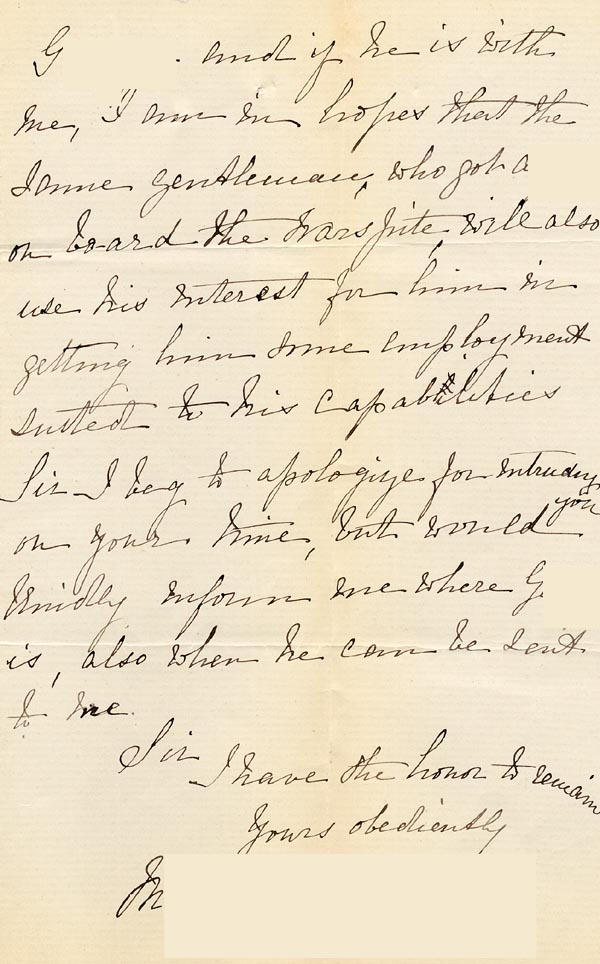 G . and if he is with
me, I am in hopes that the
same gentleman, who got A
on board the Warspite, will also
use his interest for him in
getting him some employment
suited to his capabilities
Sir I beg to apologize for intruding
on your time, but would you
kindly inform me where G.
is, also when he can be sent
to me.
Sir
I have the honor to remain
Yours obediently
M